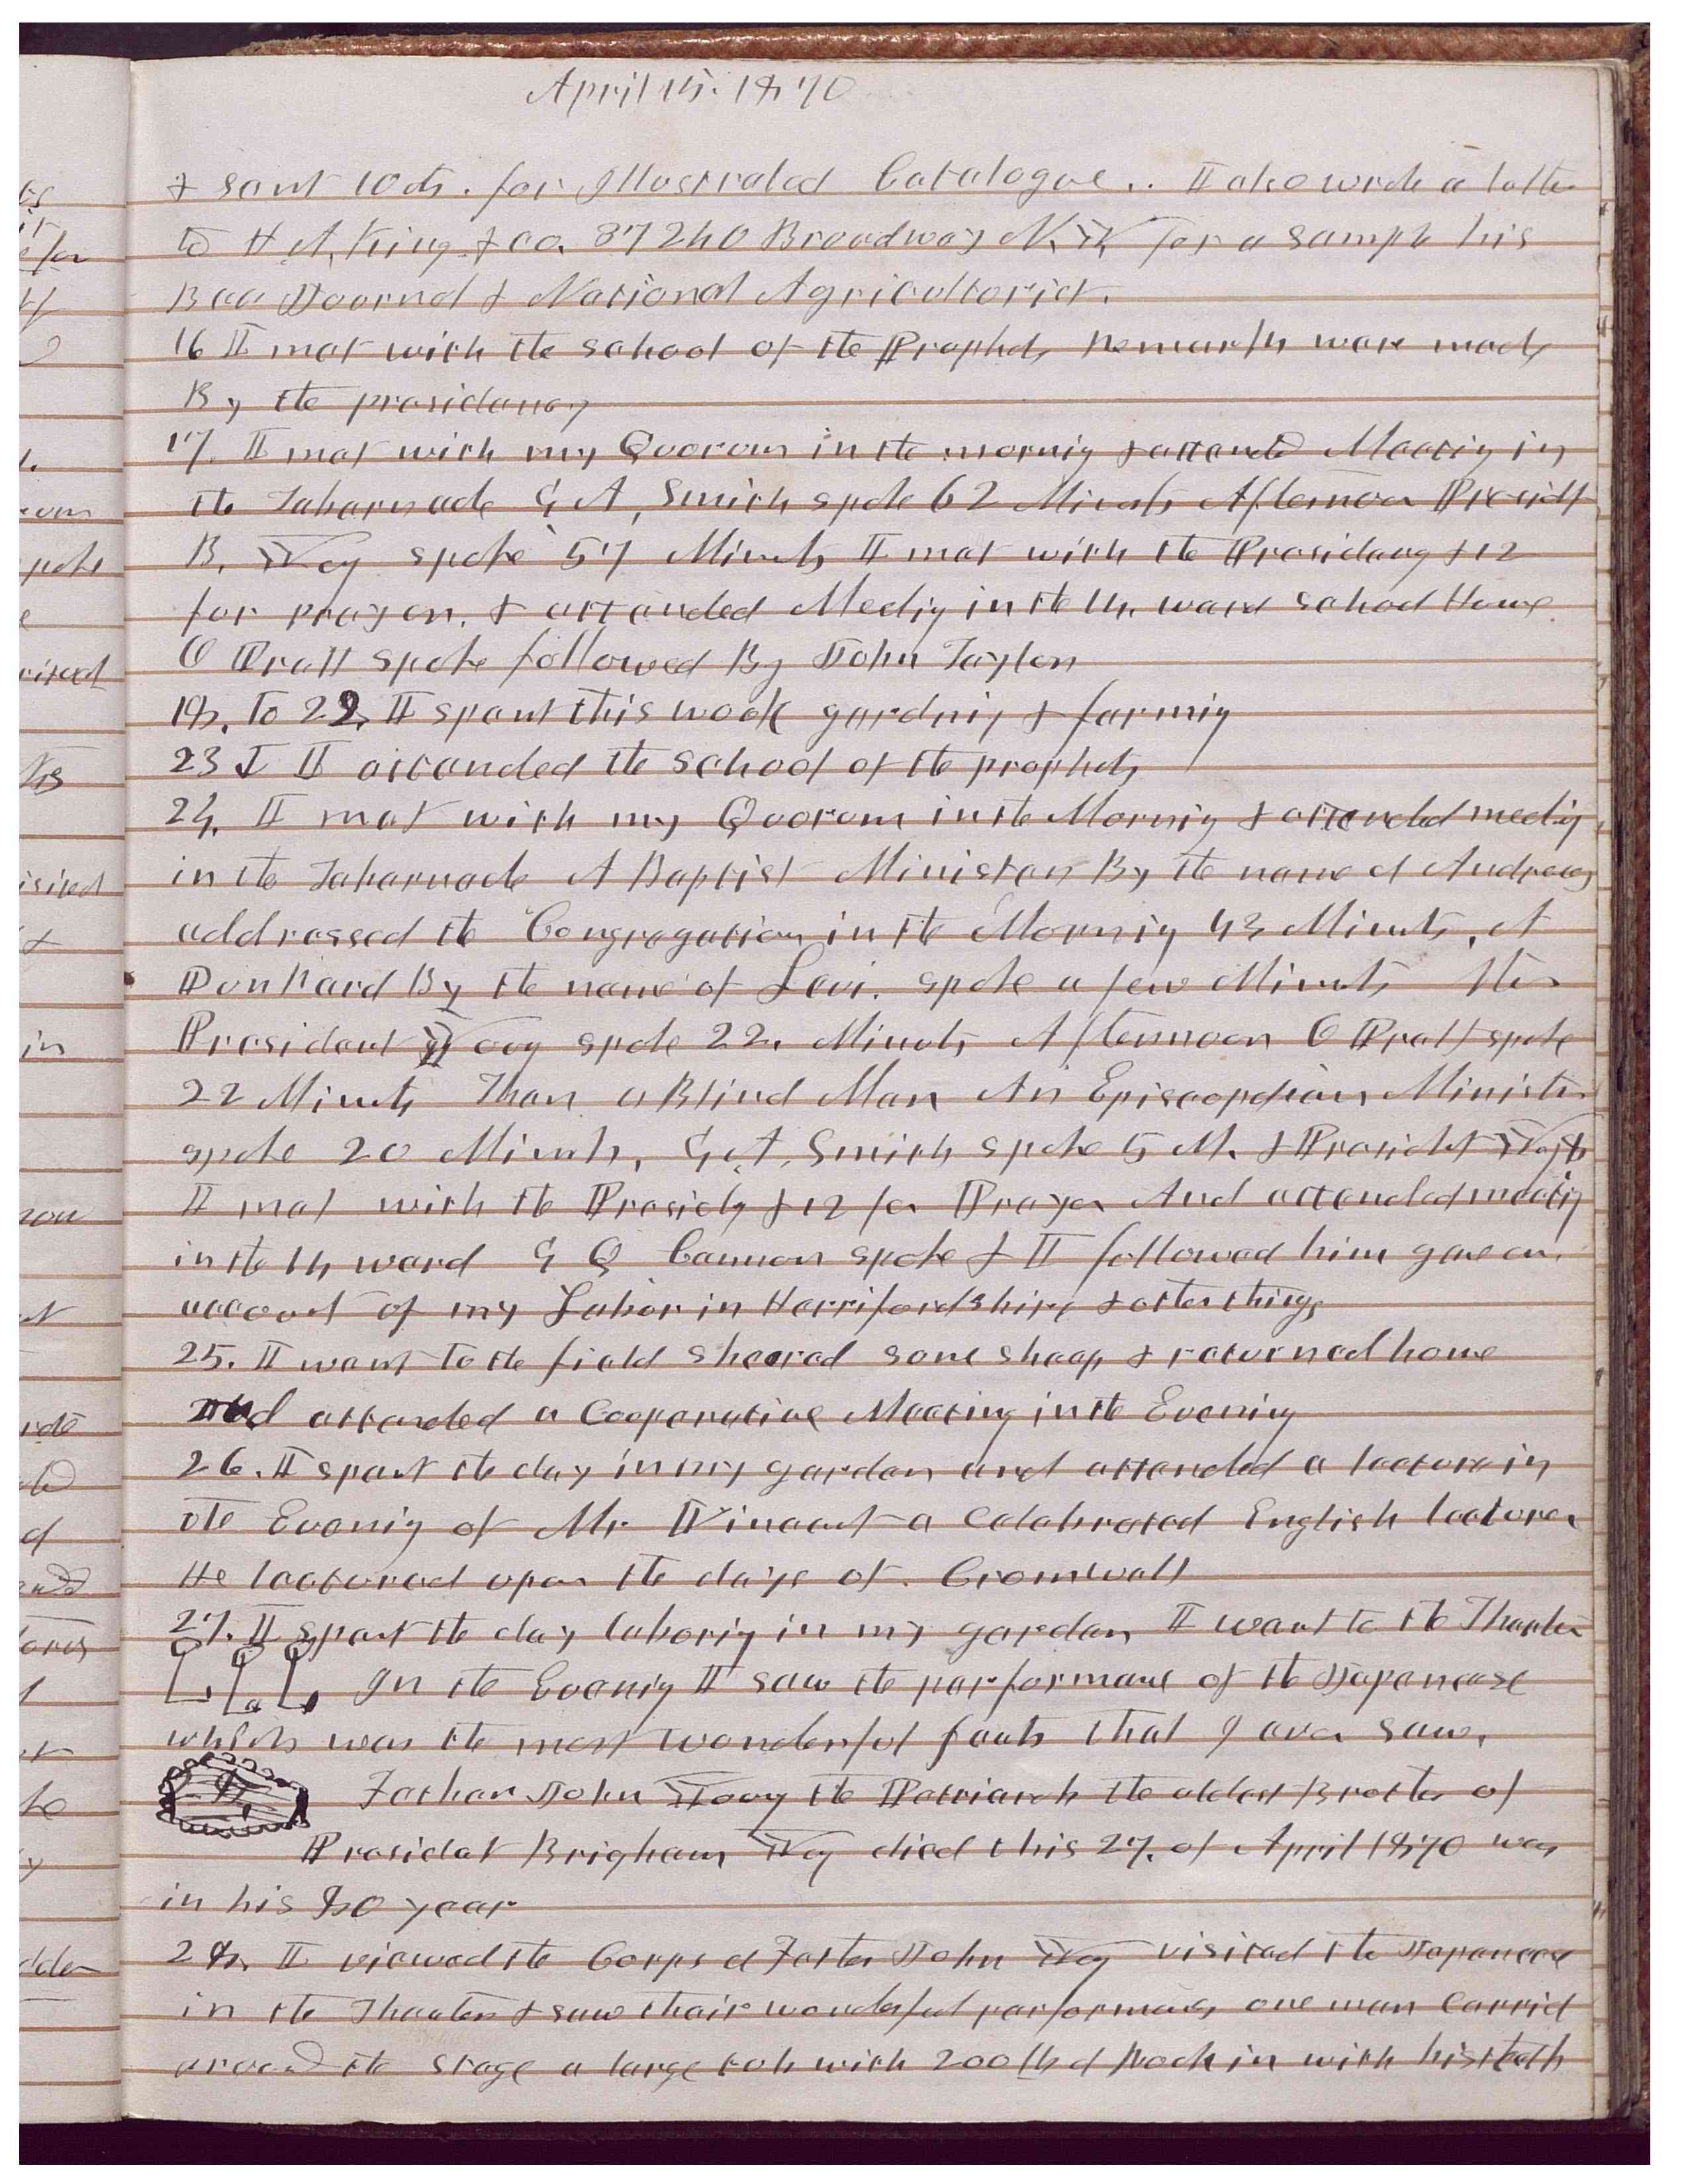 April 15. 1870
& sent 10 cts. for Illustrated Catalogue.. I also wrote a letter
to H A, King & co. 37 240 Broadway N. Y. for a sample his
Bee Journal & National Agriculturist.
16 I met with the school of the Prophets Remarks were made
By the presidency
17. I met with my Quorum in the mornig & attended Meetig in
the Tabernacle G, A, Smith spoke 62 Minuts Afternoon Presidt
B. Yog spoke 57 Minuts I met with the Presidency & 12
for prayer. & attended Meetig in the 14. ward school House
O Pratt spoke followed By John Taylor
18. to 22, I spent this week gardnig & farmig
23 I attended the school of the prophets
24. I met with my Quorum in the Mornig & attended meetig
in the Tabernacle A Baptist Minister By the name of Andrews
addressed the Congregation in the Mornig 43 Minuts, A
Dunkard By the name of Levi. spoke a few Minuts
President Youg spoke 22. Minuts Afternoon O Pratt spoke
22 Minuts Then a Blind Man An Episcopelian Minister
spoke 20 Minuts, G, A, Smith spoke 5 M. & Presidet
I met with the Presidcy & 12 for Prayer And attended meetig
in the 14 ward G Q Cannon spoke & I followed him gave an
account of my Labor in Herrifordshire & other things
25. I went to the field sheared some sheep & returned home
And attended a Cooperative Meeting in the Evening
26. I spent the day in my garden and attended a lecture in
the Evenig of Mr. Vincent a celebrated English lecturer
He lectured upon the days of. Cromwell
27. I spent the day laborig in my garden I went to the Theater
In the Evenig I saw the performance of the Japanease
which was the most wonderful feats that I ever saw.
Father John Youg the Patriarch the oldest Brother of
Presidet Brigham Yog died this 27. of April 1870 was
in his 80 year
28. I viewed the Corps of Father John Yog visited the Japanese
in the Theater & saw their wonderful performances one man carrid
around the stage a large tub with 200 lb of Rock in with his teeth